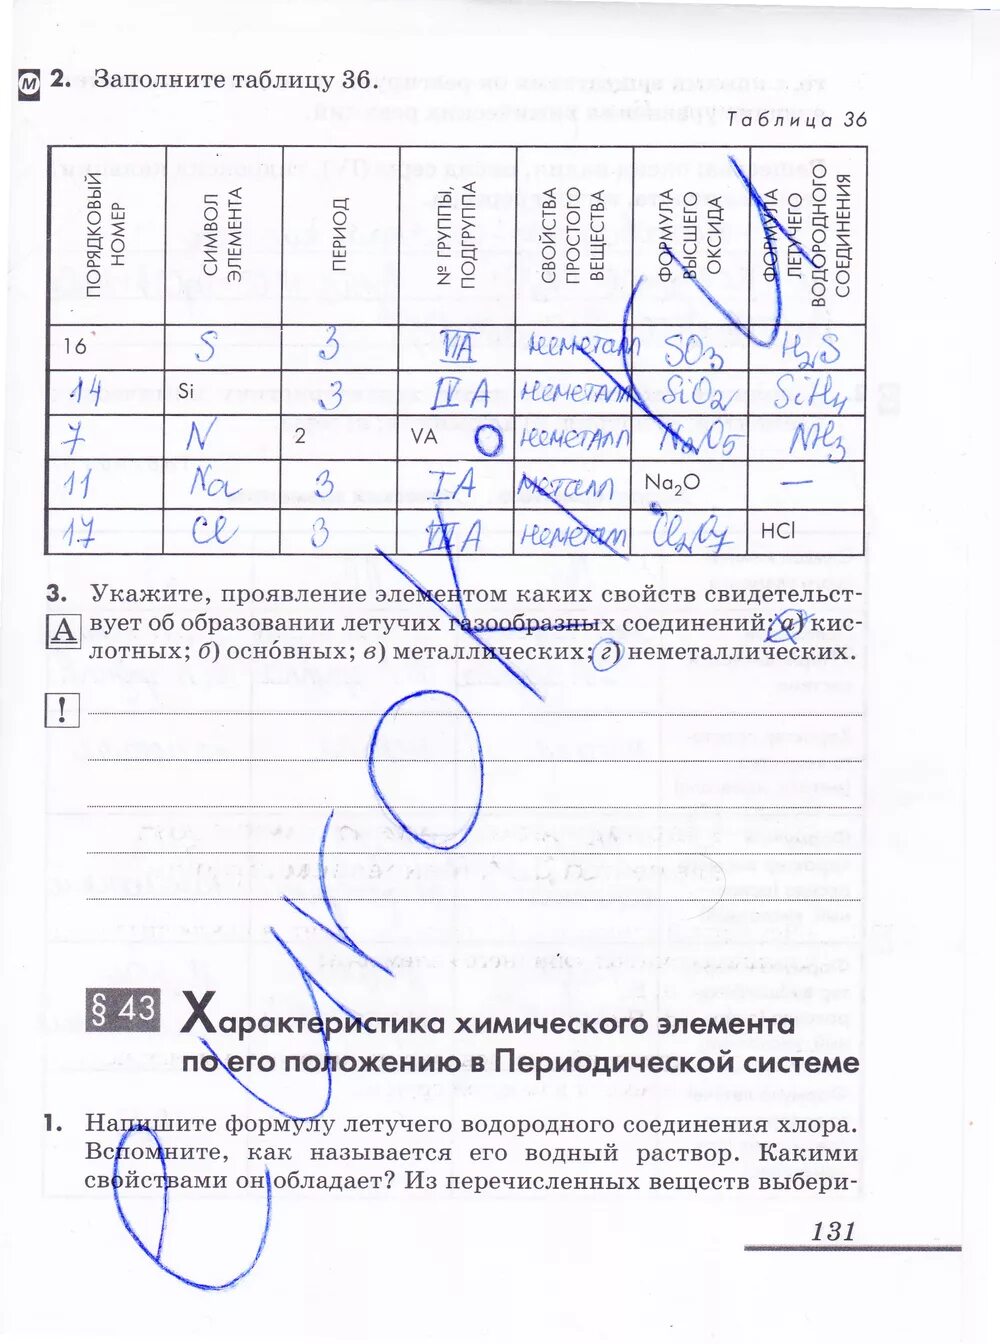 М 2. Заполните таблицу 36.
Таблица 36
ПОРЯДКОВЫЙ НОМЕР
СИМВОЛ ЭЛЕМЕНТА
ПЕРИОД
№ ГРУППЫ, ПОДГРУППА
СВОЙСТВА ПРОСТОГО ВЕЩЕСТВА
ФОРМУЛА ВЫСШЕГО ОКСИДА
ФОРМУЛА ЛЕТУЧЕГО ВОДОРОДНОГО СОЕДИНЕНИЯ
16 S 3 VIA неметалл SO3 H2S
14 Si 3 IVA неметалл SiO2 SiH4
7 N 2 VA неметалл N2O5 NH3
11 Na 3 IA металл Na2O —
17 Cl 3 VIIA неметалл Cl2O7 HCl
3. Укажите, проявление элементом каких свойств свидетельст-
А вует об образовании летучих газообразных соединений: а) кис-
лотных; б) осно́вных; в) металлических; г) неметаллических.
!
§ 43 Характеристика химического элемента
по его положению в Периодической системе
1. Напишите формулу летучего водородного соединения хлора.
Вспомните, как называется его водный раствор. Какими
свойствами он обладает? Из перечисленных веществ выбери-
131